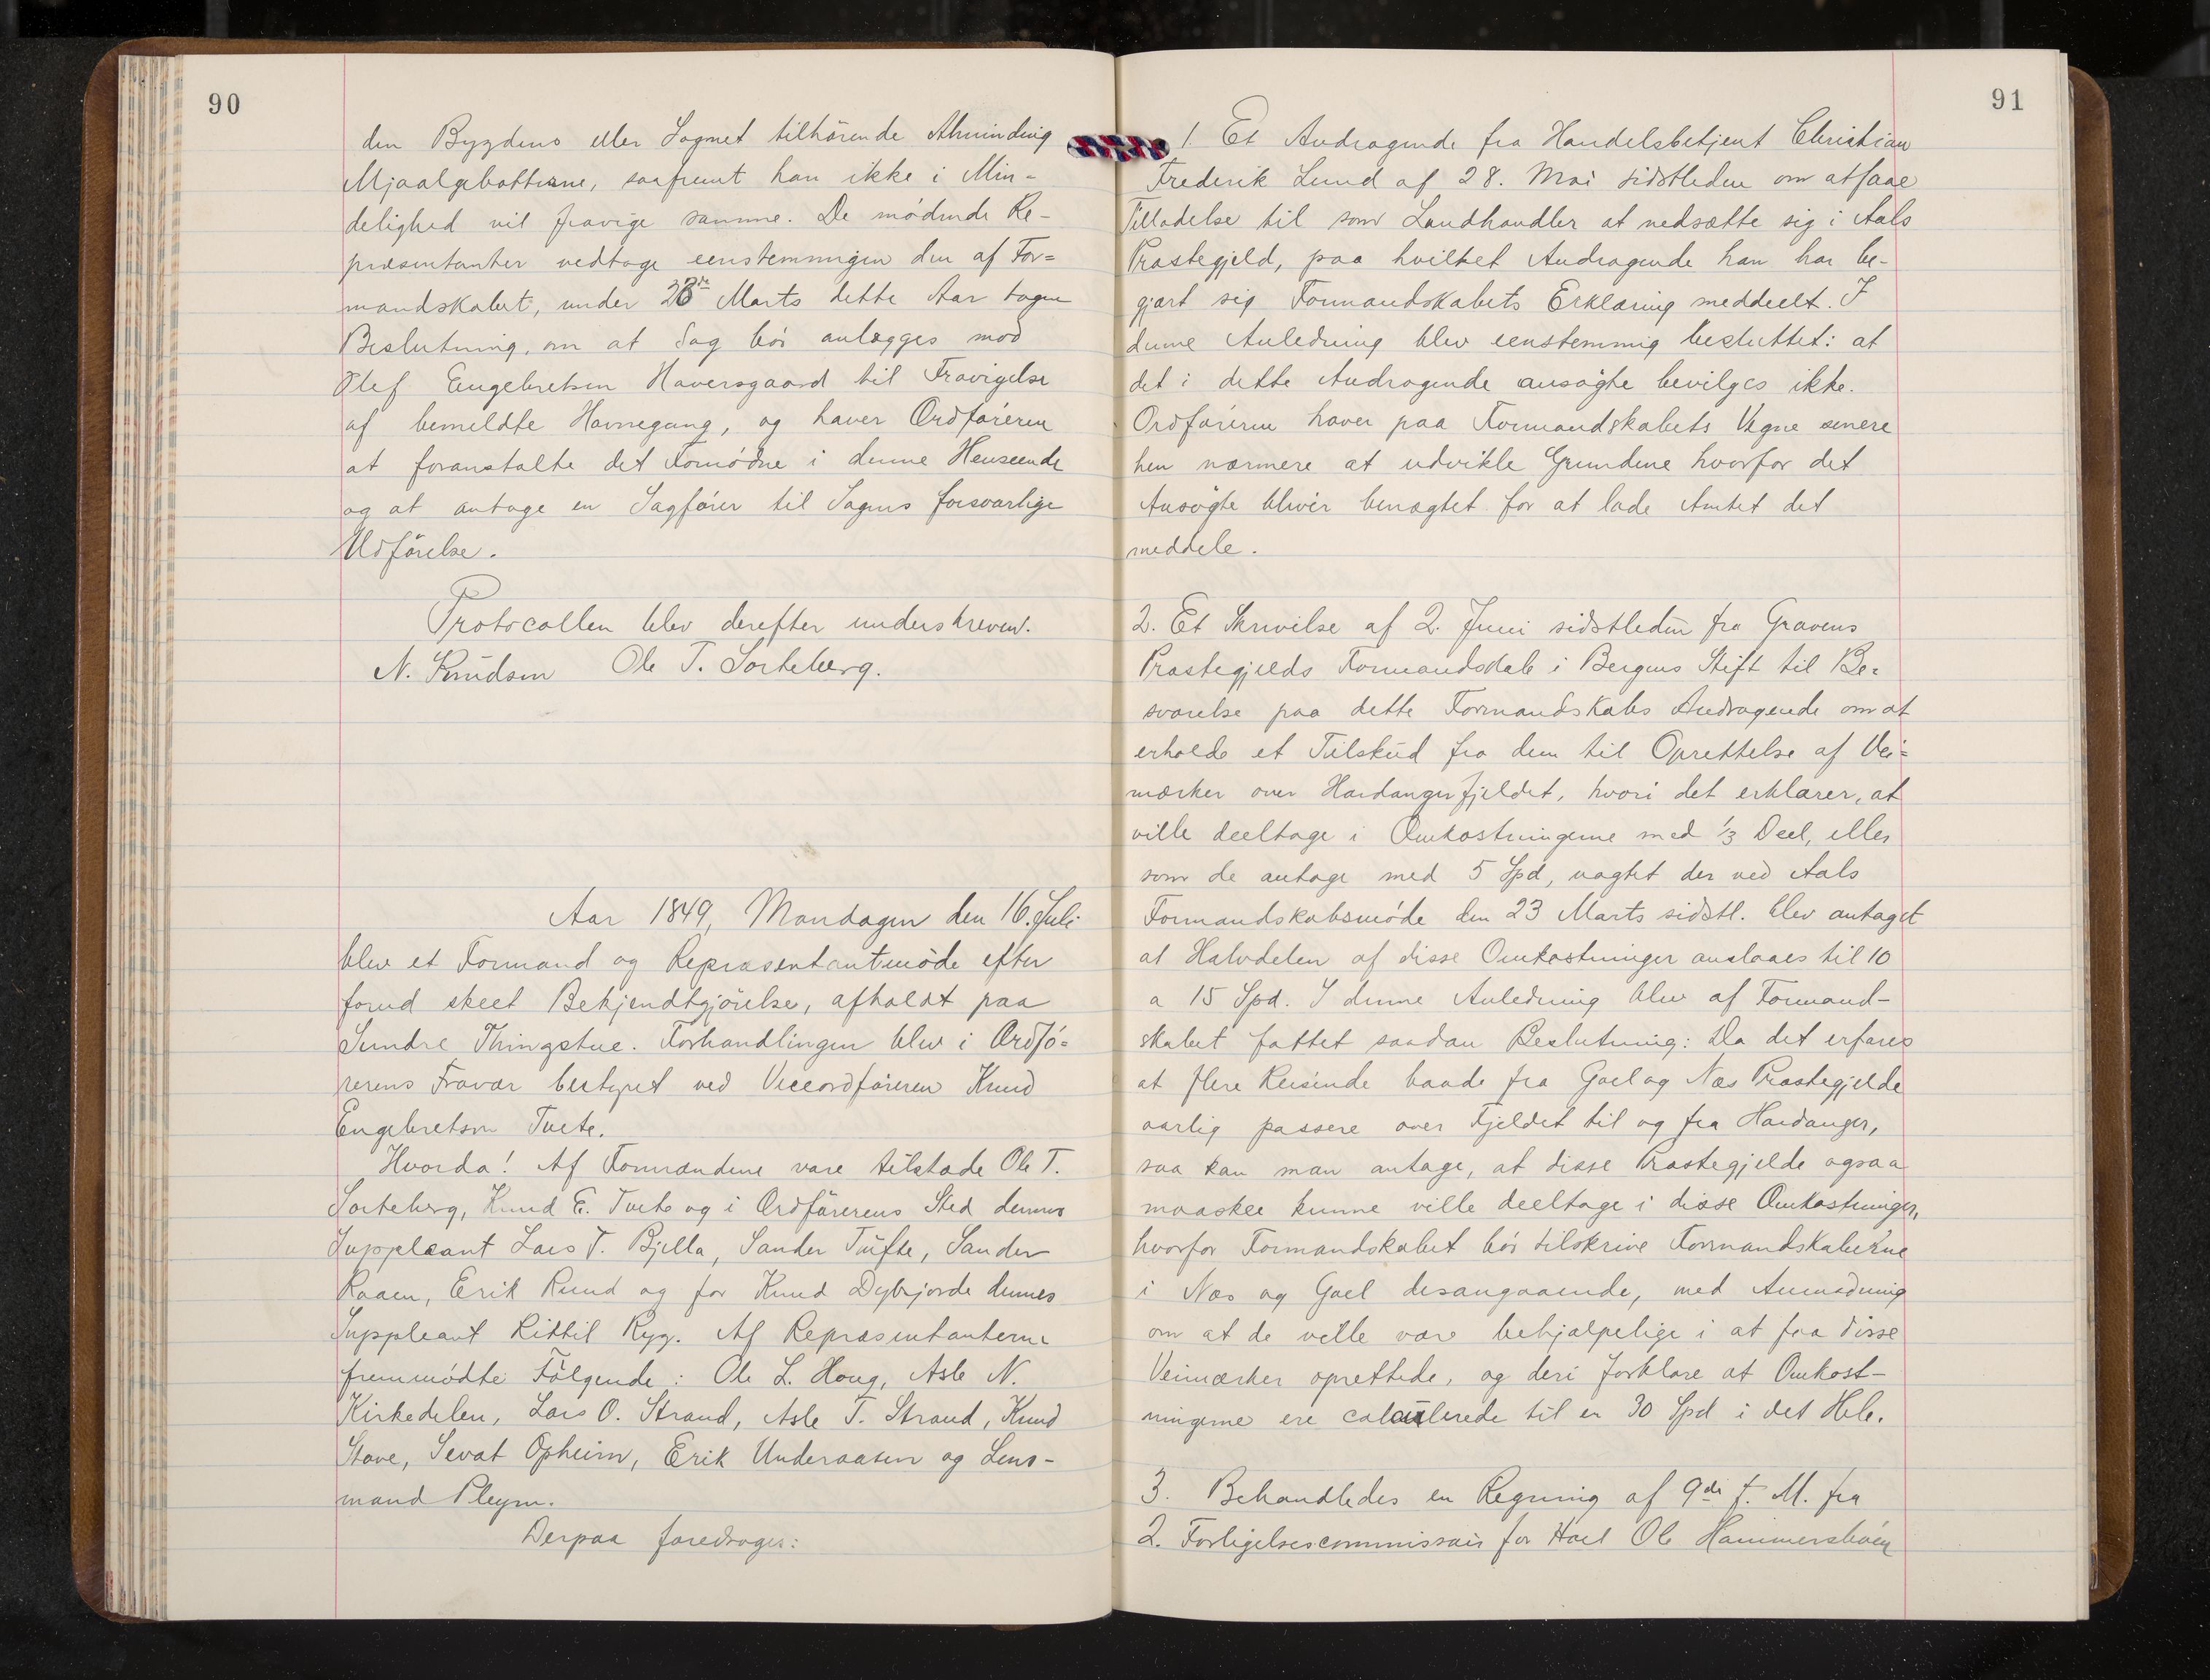 90
den Bygdens eller Sognet tilhörende Alminding
Mjaalgebottnene, saafremt han ikke i Min-
delighed vil fravige samme. De mödende Re-
præsentanter vedtoge eenstemmigen den af For=
mandskabet, under 23de Marts dette Aar tagne
Beslutning, om at Sag bör anlægges mod
Olef Engebretsen Haversgaard til Fravigelse
af bemeldte Havnegang, og haver Ordföreren
at foranstalte det Fornödne i denne Henseende
og at antage en Sagförer til Sagens forsvarlige
Udförelse.
Protocollen blev derefter underskreven.
N. Knudsen Ole T. Sorteberg.
Aar 1849, Mandagen den 16. Juli
blev et Formand og Repræsentantmöde efter
forud skeet Bekjendtgjörelse, afholdt paa
Sundre Thingstue. Forhandlingen blev i Ordfö=
rerens Fravær bestyret ved Viceordföreren Knud
Engebretsen Tvete.
Hvorda! Af Formændene vare tilstæde Ole T.
Sorteberg, Knud E. Tvete og i Ordförerens Sted dennes
Suppleant Lars T. Bjella, Sander Tufte, Sander
Raaen, Erik Rund og for Knud Dybsjorde dennes
Suppleant Kittil Ryg. Af Repræsentanterne
fremmödte Fölgende: Ole L. Houg, Asle N.
Kirkedelen, Lars O. Strand, Asle T. Strand, Knud
Stave, Sevat Opheim, Erik Underaasen og Lens-
mand Pleym.
Derpaa foredroges:
91
1. Et Andragende fra Handelsbetjent Christian
Frederik Lund af 28. Mai sidstleden om at faae
Tilladelse til som Landhandler at nedsætte sig i Aals
Præstegjeld, paa hvilket Andragende han har be-
gjært sig Formandskabets Erklæring meddeelt. I
denne Anledning blev eenstemmig besluttet: at
det i dette Andragende ansögte bevilges ikke.
Ordföreren haver paa Formandskabets Vegne senere
hen nærmere at udvikle Grundene hvorfor det
Ansögte bliver benægtet for at lade Amtet det
meddele.
2. Et Skrivelse af 2. Juni sidstleden fra Gravens
Præstegjelds Formandskab i Bergens Stift til Be=
svarelse paa dette Formandskabs Andragende om at
erholde et Tilskud fra dem til Oprettelse af Vei=
mærker over Hardangerfjeldet, hvori det erklærer, at
ville deeltage i Omkostningerne med 1/3 Deel, eller
som de antage med 5 Spd, uagtet der ved Aals
Formandskabsmöde den 23 Marts sidstl. blev antaget
at Halvdelen af disse Omkostninger anslaaes til 10
a 15 Spd. I denne Anledning blev af Formand-
skabet fattet saadan Beslutning: Da det erfares
at flere Reisende baade fra Goel og Næs Præstegjelde
aarlig passere over Fjeldet til og fra Hardanger,
saa kan man antage, at disse Præstegjelde ogsaa
maaskee kunne ville deeltage i disse Omkostninger,
hvorfor Formandskabet bör tilskrive Formandskaberne
i Næs og Goel desangaaende, med Anmodning
om at de ville være behjælpelige i at faa disse
Veimærker oprettede, og deri forklare at Omkost-
ningerne ere calculerede til er 30 Spd i det Hele.
3. Behandledes en Regning af 9de f. M. fra
2. Forligelsescommissair for Hoel Ole Hammersbøen